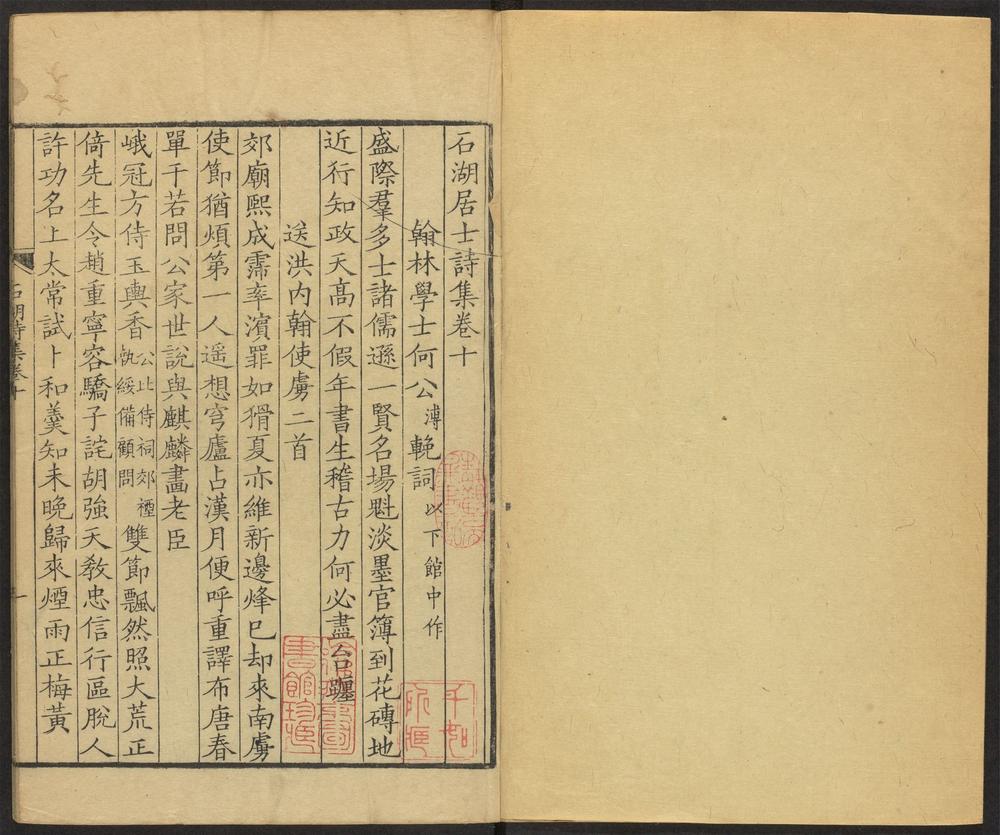 石湖居士詩集卷十
翰林學士何公溥輓詞以下館中作
盛際羣多士諸儒遜一賢名場魁淡墨官簿到花磚地
近行知政天髙不假年書生稽古力何必盡台躔
送洪内翰使虜二首
郊廟熙成霈率濱罪如猾夏亦維新邊烽已却來南虜
使節猶煩第一人遥想穹廬占漢月便呼重譯布唐春
單于若問公家世說與麒麟畫老臣
峨冠方侍玉輿香公比侍祠郊禋執綏備顧問雙節飄然照大荒正
倚先生令趙重寧容驕子詫胡強天教忠信行區脫人
許功名上太常試卜和羮知未晚歸來煙雨正梅黃
石湖詩集卷十
一